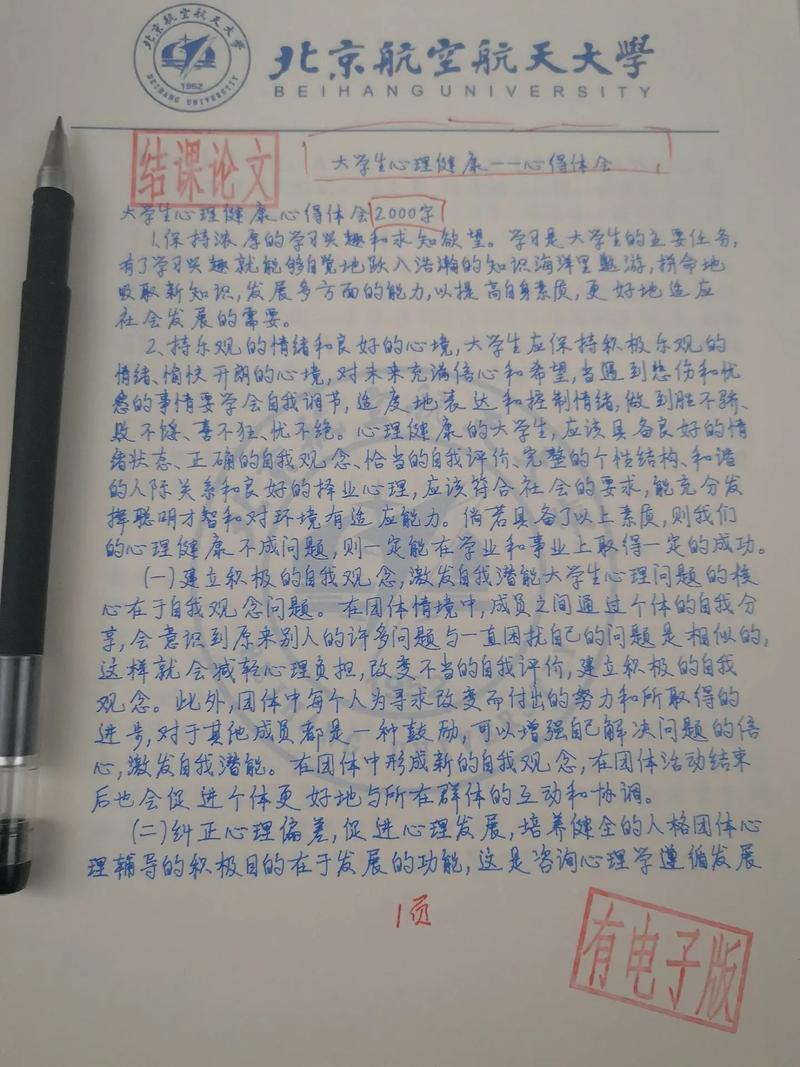 北京航空航天大學
BEIHANG UNIVERSITY
1952
BEIHANG UNIVERSITY
结课论文
大学生心理健康——心得体会
大学生心理健康心得体会2000字
1.保持浓厚的学习兴趣和求知欲望。学习是大学生的主要任务,
有了学习兴趣就能够自觉地跃入浩瀚的知识海洋里遨游,拼命地
吸取新知识,发展多方面的能力,以提高自身素质,更好地适应
社会发展的需要。
2、持乐观的情绪和良好的心境,大学生应保持积极乐观的
情绪、愉快开朗的心境,对未来充满信心和希望,当遇到悲伤和忧
愁的事情要学会自我调节,适度地表达和控制情绪,做到胜不骄、
败不馁、喜不狂、忧不绝。心理健康的大学生,应该具备良好的情
绪状态、正确的自我观念、恰当的自我评价、完整的个性结构、和谐
的人际关系和良好的择业心理,应该符合社会的要求,能充分发
挥聪明才智和对环境有适应能力。倘若具备了以上素质,则我们
的心理健康不成问题,则一定能在学业和事业上取得一定的成功。
(一)建立积极的自我观念,激发自我潜能大学生心理问题的核
心在于自我观念问题。在团体情境中,成员之间通过个体的自我分
享,会意识到原来别人的许多问题与一直困扰自己的问题是相似的,
这样就会减轻心理负担,改变不当的自我评价,建立积极的自我
观念。此外,团体中每个人为寻求改变而付出的努力和所取得的
进步,对于其他成员都是一种鼓励,可以增强自己解决问题的信
心,激发自我潜能。在团体中形成新的自我观念,在团体活动结束
后也会促进个体更好地与所在群体的互动和协调。
(二)纠正心理偏差,促进心理发展,培养健全的人格团体心
理辅导的积极目的在于发展的功能,这是咨询心理学遵循发展
1页
有电子版